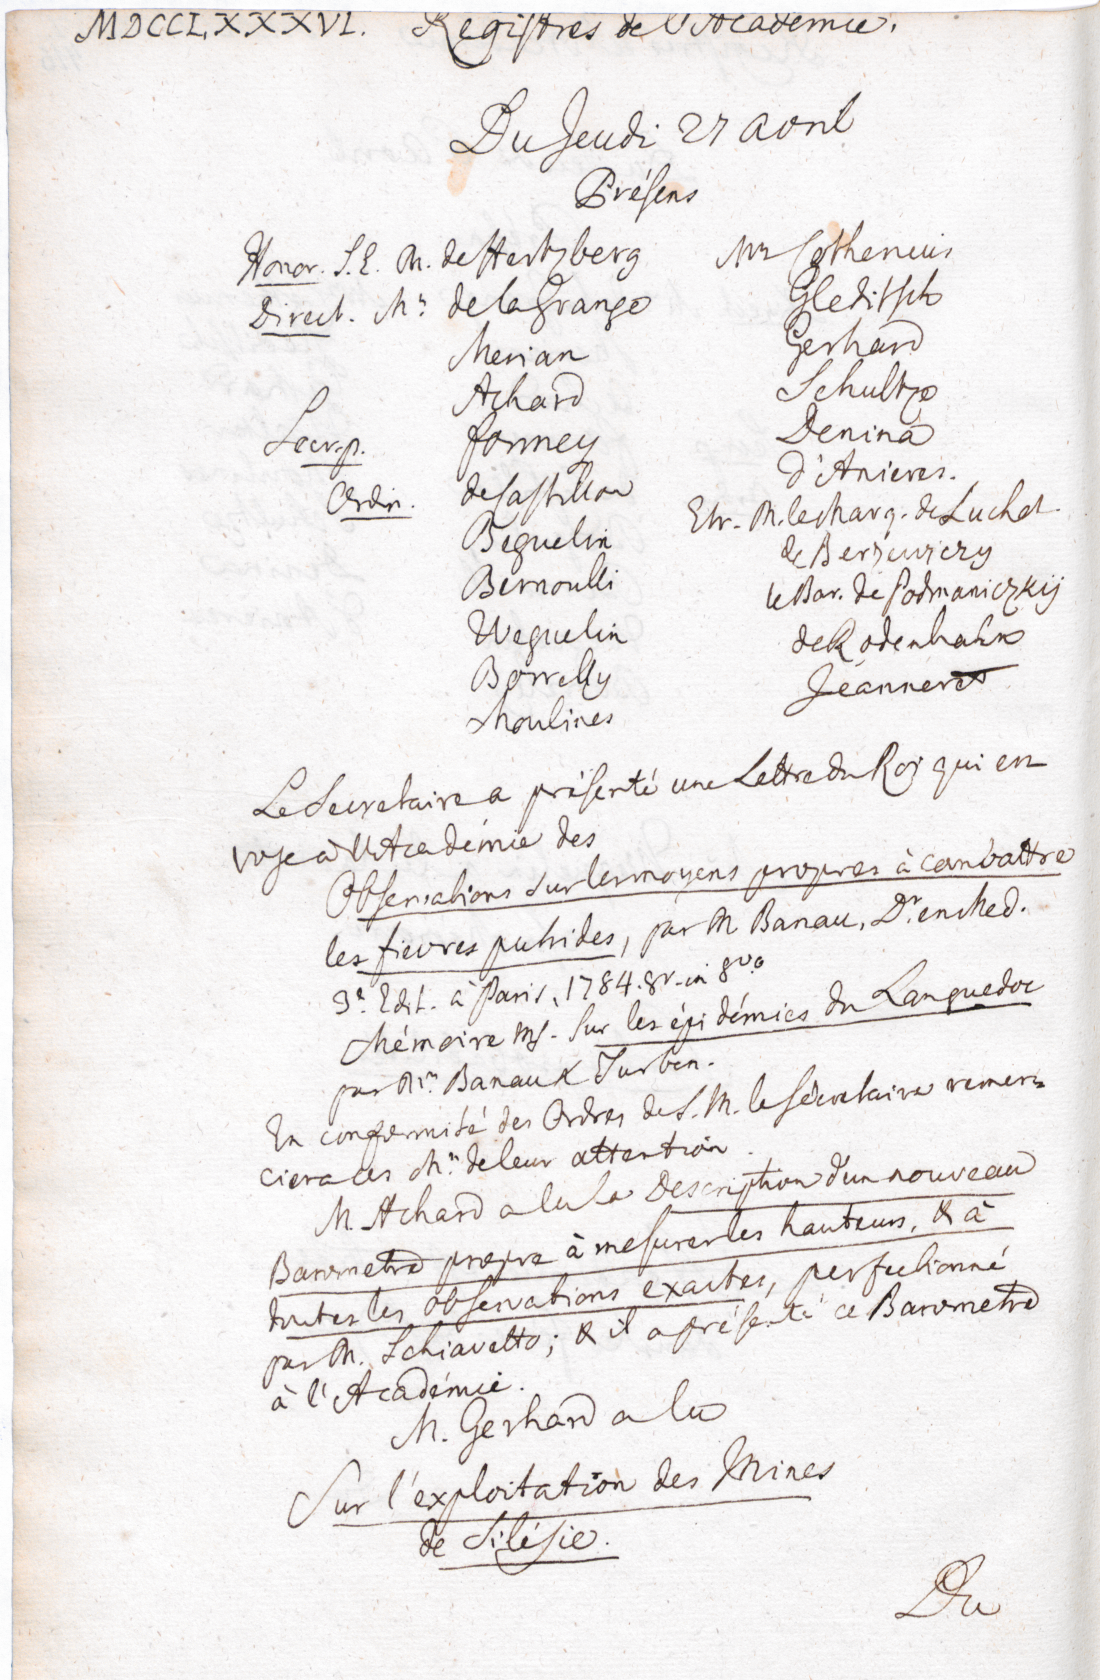 MDCCLXXXVI. Registres de l'Academie.
Du Jeudi 27 Avril
Présens
Honor. S. E. M. de Hertzberg
Direct. Mrs de la Grange
Merian
Achard
Secr. p. formey
Ordin. de Castillon
Beguelin
Bernoulli
Weguelin
Borrelly
Moulines
Mrs Cothenius
Gleditsch
Gerhard
Schultze
Denina
d'Anieres.
Etr. M. le Marq. de Luchet
de Berzewiczy
le Bar. de Podmaniczkij
de Rodenhahn
Jeanneret
Le Secretaire a présenté une Lettre du Roj qui en
voye à l'Académie des
Observations sur les moyens propres à combattre
les fievres putrides, par M Banau, Dr. en Med.
3e. Edit. à Paris, 1784. gr. in 8vo.
Mémoire ms. sur les épidémies du Languedoc
par Mrs. Banau & Turben.
En conformité des Ordres de S. M. le Sécretaire remer=
ciera ces Mrs. de leur attention.
M. Achard a lu la Description d'un nouveau
Barometre propre à mesurer les hauteurs, & à
toutes les observations exactes, perfectionné
par M. Schiavetto; & il a présenté ce Barometre
à l'Académie.
M. Gerhard a lu
Sur l'exploitation des Mines
de Silésie.
Du